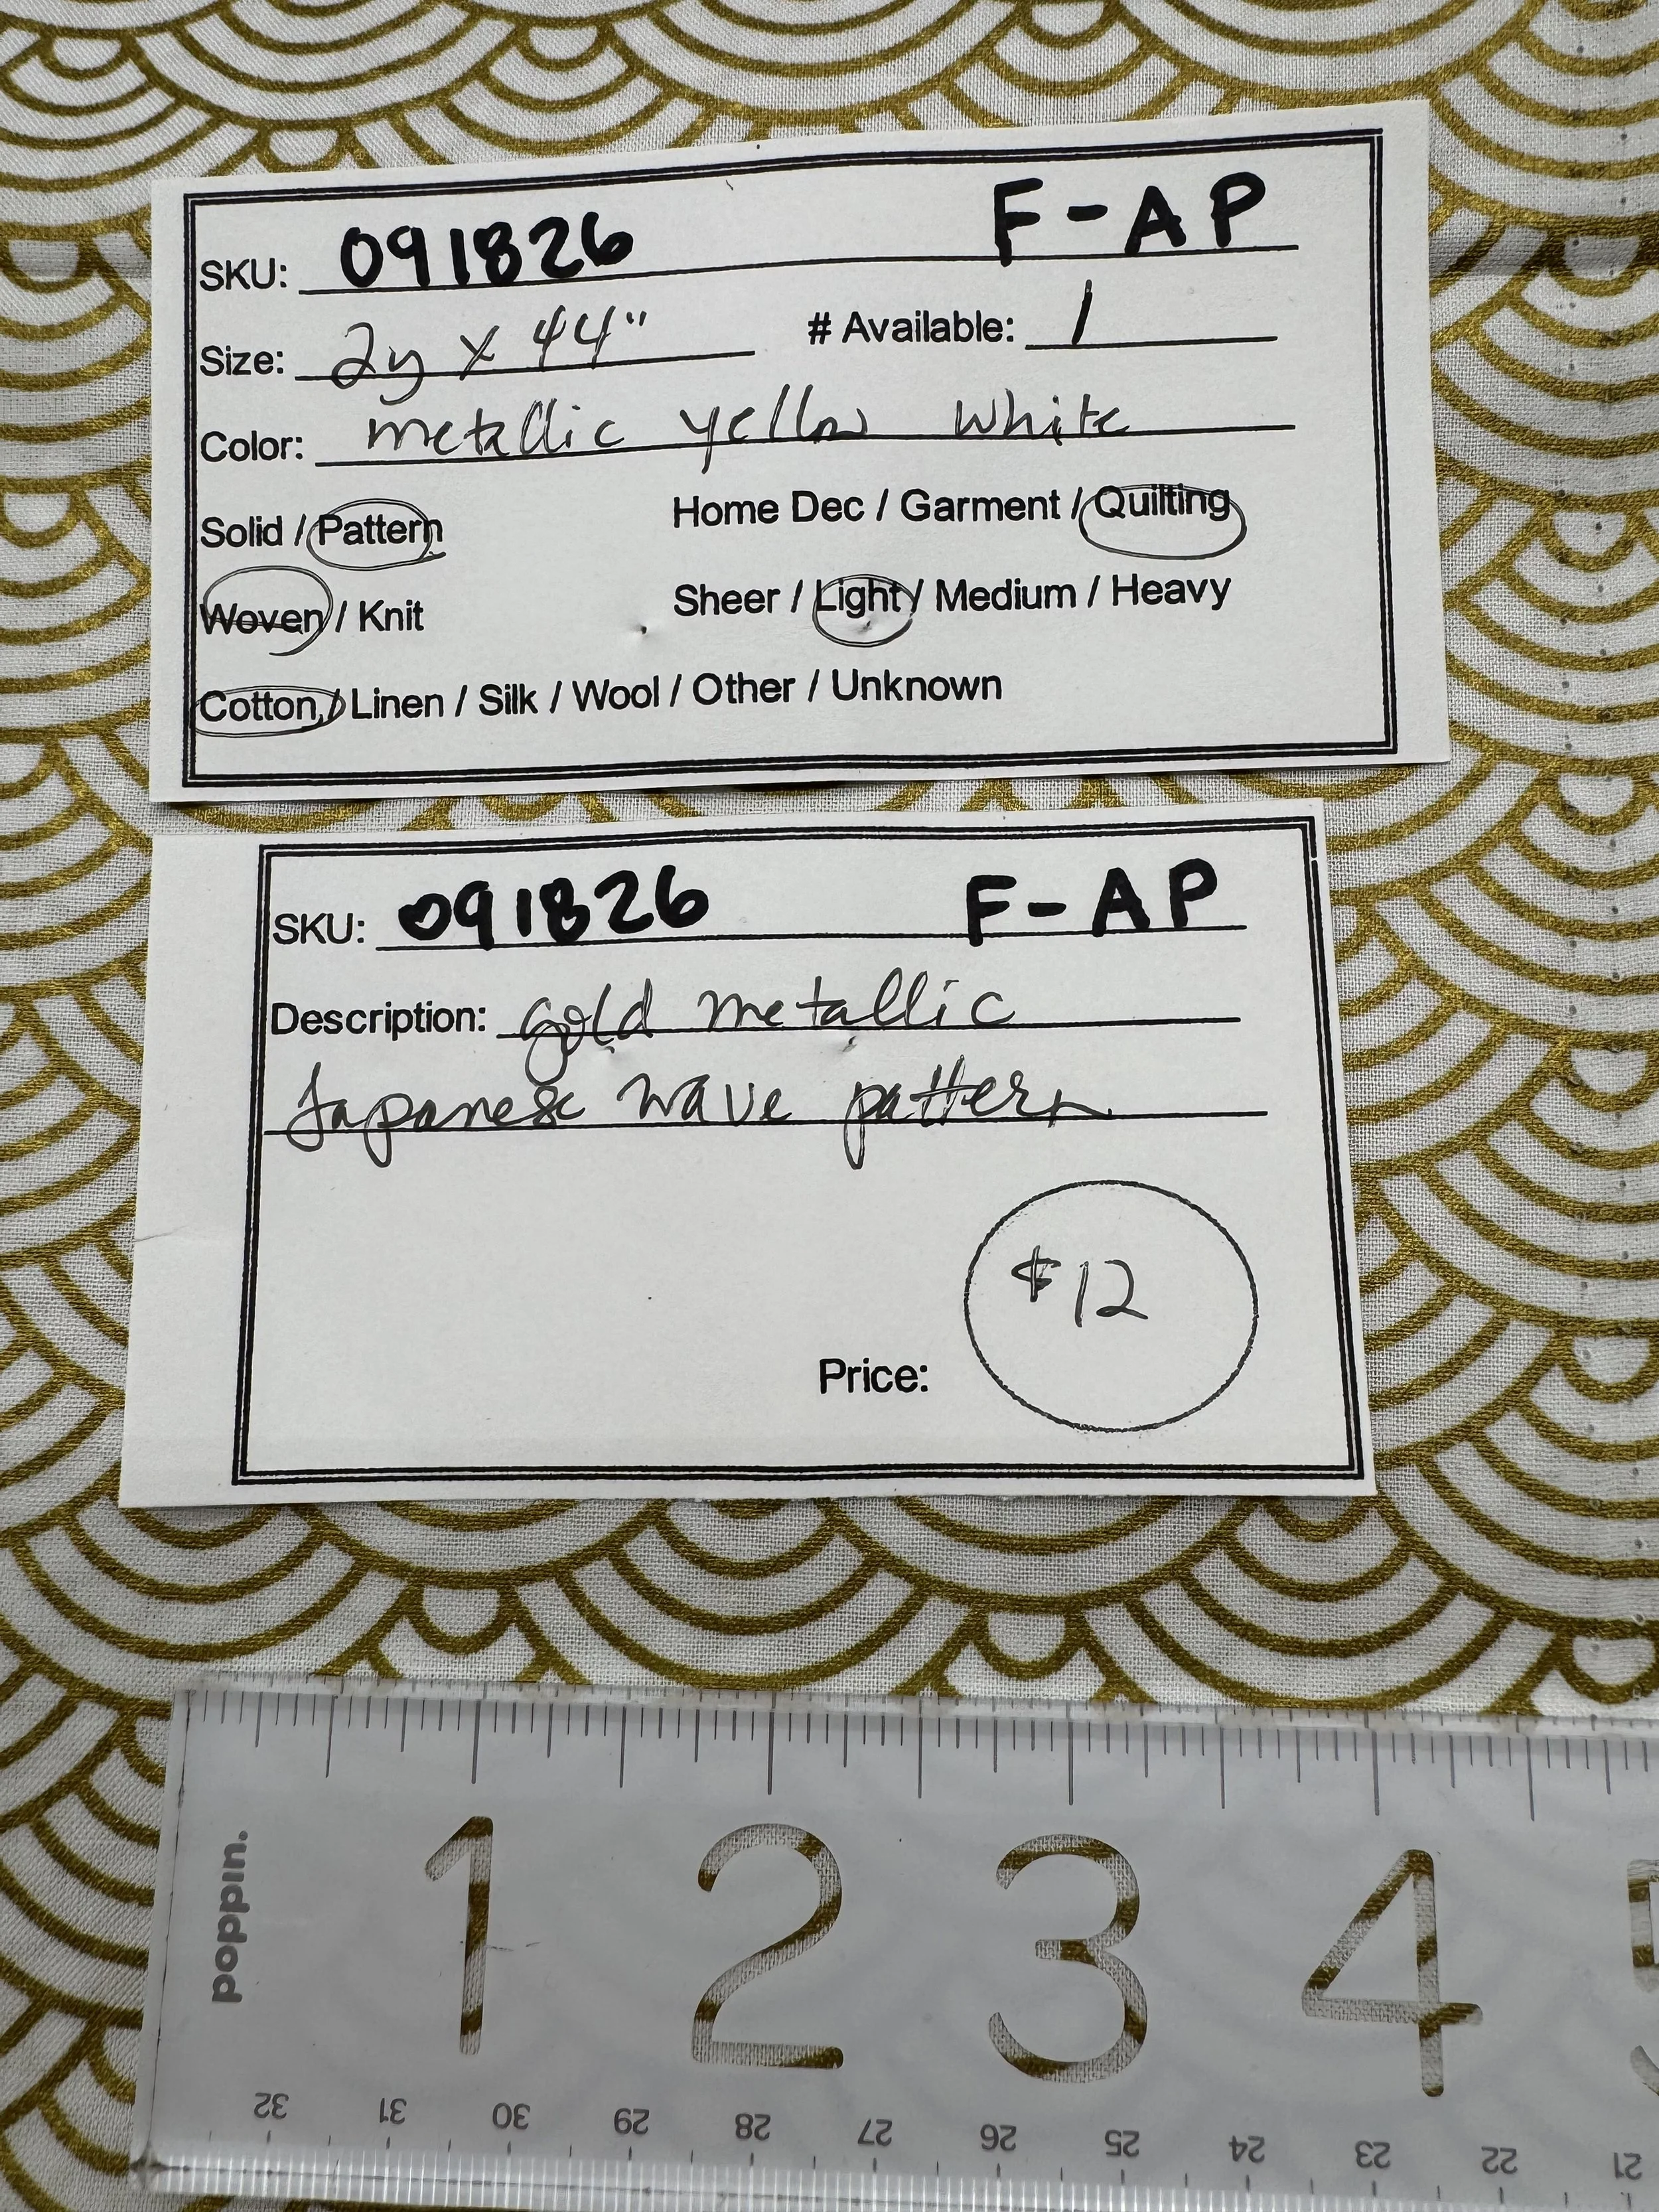 SKU: 091826 F-AP
Size: 2y x 44" # Available: 1
Color: metallic yellow white
Solid / Pattern Home Dec / Garment / Quilting
Woven / Knit Sheer / Light / Medium / Heavy
Cotton / Linen / Silk / Wool / Other / Unknown
SKU: 091826 F-AP
Description: gold metallic
Japanese wave pattern
$12
Price:
poppin.
1 2 3 4 5
32 31 30 29 28 27 26 25 24 23 22 21